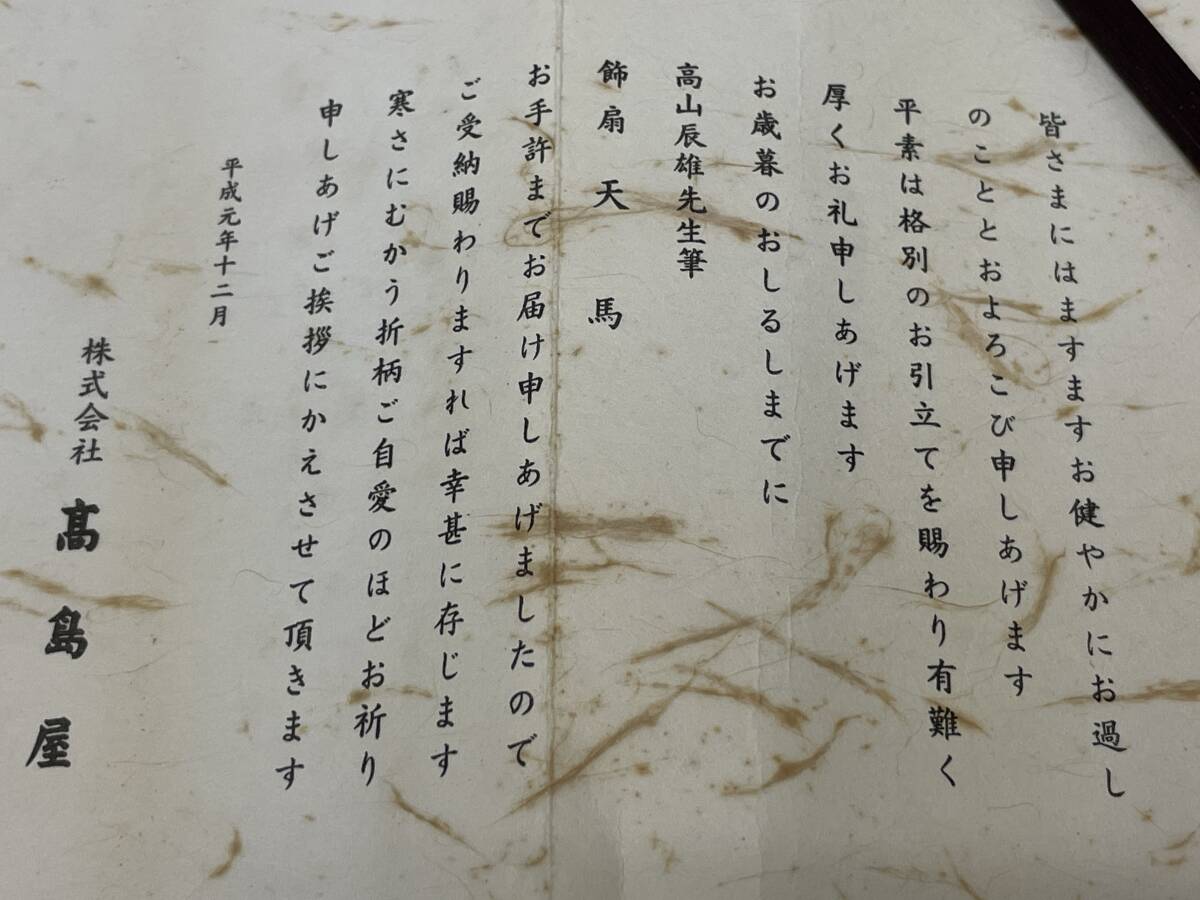 皆さまにはますますお健やかにお過し
のこととおよろこび申しあげます
平素は格別のお引立てを賜わり有難く
厚くお礼申しあげます
お歳暮のおしるしまでに
高山辰雄先生筆
飾扇天馬
お手許までお届け申しあげましたので
ご受納賜わりますれば幸甚に存じます
寒さにむかう折柄ご自愛のほどお祈り
申しあげご挨拶にかえさせて頂きます
平成元年十二月
株式会社 髙島屋